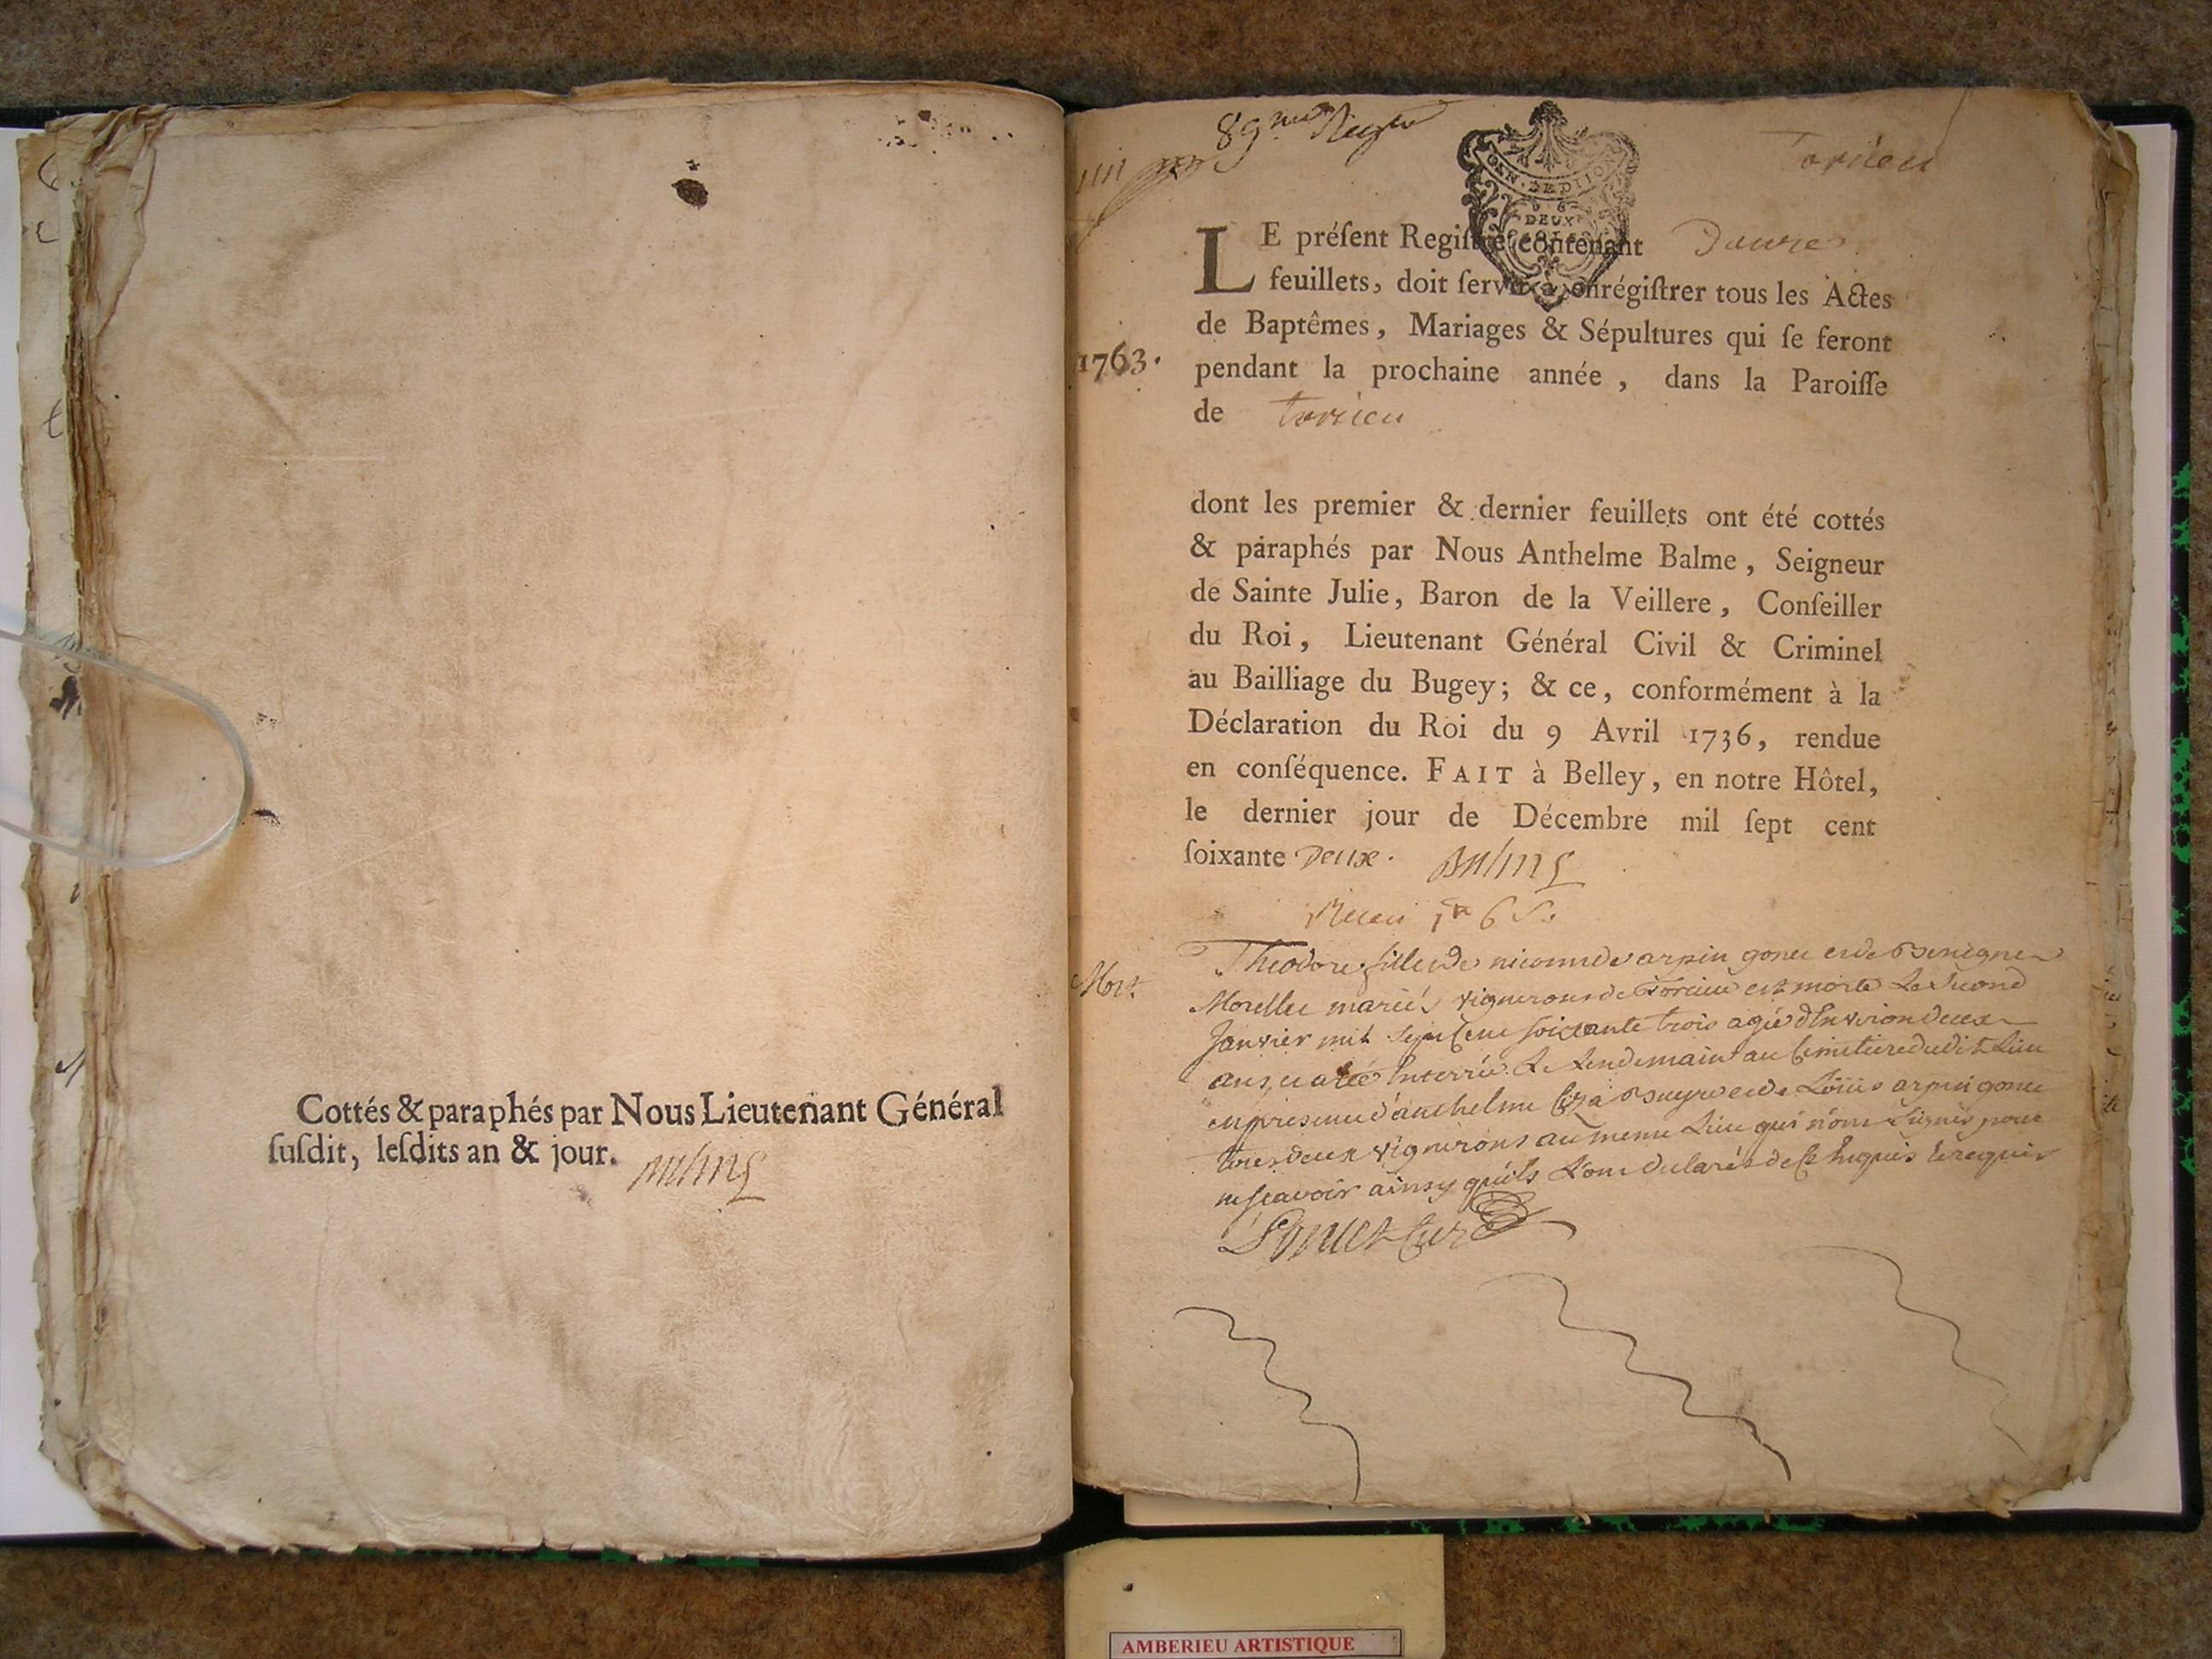 Cottés & paraphés par Nous Lieutenant Général
ſuſdit, leſdits an & jour.
89me
Torcieu
GEN. DE DIJON
DEUX
LE préſent Regiſtre contenant Douze
feuillets, doit ſervir à enrégiſtrer tous les Actes
de Baptêmes, Mariages & Sépultures qui ſe feront
1763. pendant la prochaine année, dans la Paroiſſe
de torcieu
dont les premier & dernier feuillets ont été cottés
& paraphés par Nous Anthelme Balme, Seigneur
de Sainte Julie, Baron de la Veillere, Conſeiller
du Roi, Lieutenant Général Civil & Criminel
au Bailliage du Bugey; & ce, conformément à la
Déclaration du Roi du 9 Avril 1736, rendue
en conſéquence. FAIT à Belley, en notre Hôtel,
le dernier jour de Décembre mil ſept cent
ſoixante Deux. Balme
Mort. Theodore fille de arpin gonet et de Benigne
Morellet mariés vignerons de Torcieu est morte Le second
Janvier mil sept cent soixante trois agée d'Environ deux
ans, et a été Enterrée Le Lendemain au Cimetiere dudit Lieu
en presence d'anthelme et de Loüis arpin gonet
tous deux vignerons au meme Lieu qui n'ont signés pour
ne scavoir ainsy qu'ils L'ont declarés de ce Enquis requis
Curé
AMBERIEU ARTISTIQUE